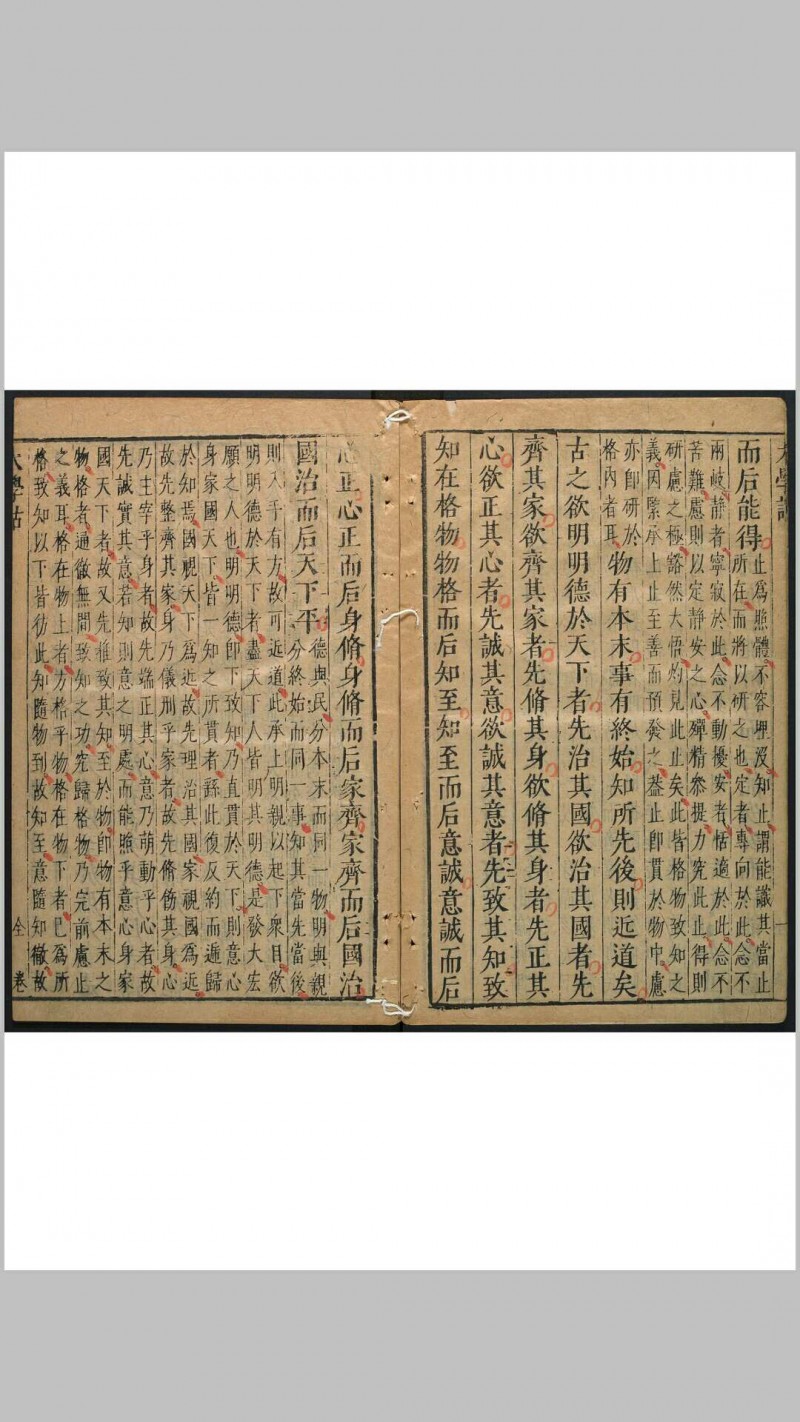 而后能得
止為照體不容埋沒知止謂能識其當止
所在而將以研之也定者專向於此念不
兩岐靜者寧寂於此念不動擾安者恬適於此念不
苦難慮則以定靜安之心殫精參提力究此止得則
研慮之極豁然大悟灼見此止矣此皆格物致知之
義因緊承上止至善而預發之蓋止即貫於物中慮
亦即研於
格內者耳
物有本末事有終始知所先後則近道矣
古之欲明明德於天下者先治其國欲治其國者先
齊其家欲齊其家者先脩其身欲脩其身者先正其
心欲正其心者先誠其意欲誠其意者先致其知致
知在格物物格而后知至知至而后意誠意誠而后
心正心正而后身脩身脩而后家齊家齊而后國治
國治而后天下平
德與民分本末而同一物明與親
分終始而同一事知其當先當後
則入乎有方故可近道此承上明親以起下衆目欲
明明德於天下者盡天下人皆明其明德是發大宏
願之人也明明德即下致知乃直貫於天下則意心
身家國天下皆一知之所貫者繇此復反約而遞歸
於知焉國視天下為近故先理治其國家視國為近
故先整齊其家身乃儀刑乎家者故先脩飭其身心
乃主宰乎身者故先端正其心意乃萌動乎心者故
先誠實其意若知則意之明處而能照乎意心身家
國天下者故又先推致其知至於物即物有本末之
物格者通徹無間致知之功究歸格物乃完前慮止
之義耳格在物上者方格乎物格在物下者已為所
格致知以下皆彷此知隨物到故知至意隨知徹故
全卷